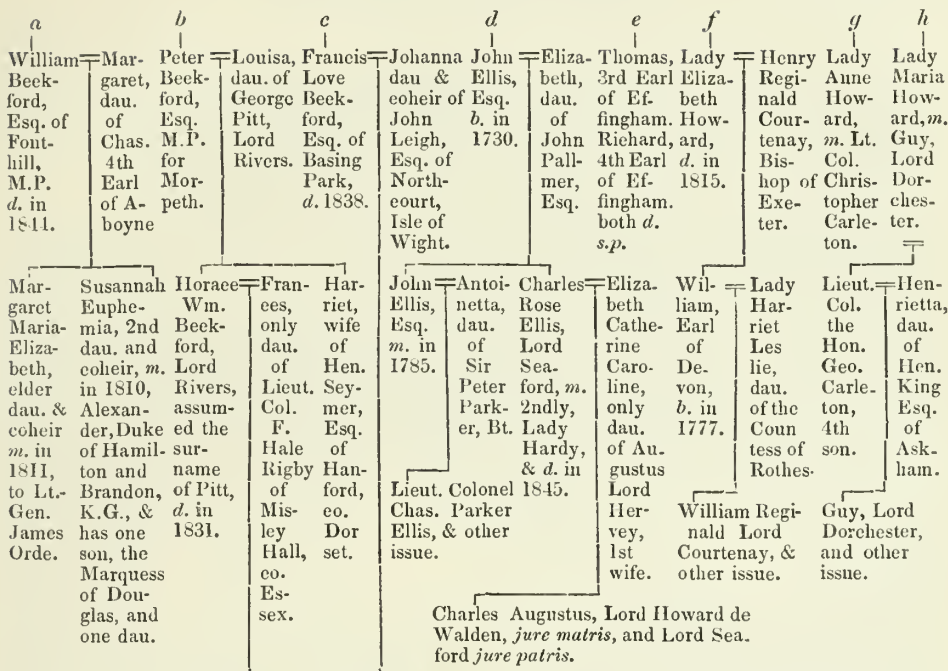 a
b
c
d
e
f
g
h
William
Beck-
ford,
Esq. of
Font-
hill,
M.P.
d. in
1844.
Mar-
garet,
dau.
of
Chas.
4th
Earl
of A-
boyne
Peter
Beck-
ford,
Esq.
M.P.
for
Mor-
peth.
Louisa,
dau. of
George
Pitt,
Lord
Rivers.
Francis
Love
Beck-
ford,
Esq. of
Basing
Park,
d. 1838.
Johanna
dau &
coheir of
John
Leigh,
Esq. of
North-
court,
Isle of
Wight.
John
Ellis,
Esq.
b. in
1730.
Eliza-
beth,
dau.
of
John
Pall-
mer,
Esq.
Thomas,
3rd Earl
of Ef-
fingham.
Richard,
4th Earl
of Ef-
fingham.
both d.
s.p.
Lady
Eliza-
beth
How-
ard,
d. in
1815.
Henry
Regi-
nald
Cour-
tenay,
Bis-
hop of
Exe-
ter.
Lady
Anne
How-
ard,
m. Lt.
Col.
Chris-
topher
Carle-
ton.
Lady
Maria
How-
ard, m.
Guy,
Lord
Dor-
ches-
ter.
Mar-
garet
Maria-
Eliza-
beth,
elder
dau. &
coheir
m. in
1811,
to Lt.-
Gen.
James
Orde.
Susannah
Euphe-
mia, 2nd
dau. and
coheir, m.
in 1810,
Alexan-
der, Duke
of Hamil-
ton and
Brandon,
K.G., &
has one
son, the
Marquess
of Dou-
glas, and
one dau.
Horace
Wm.
Beck-
ford,
Lord
Rivers,
assum-
ed the
sur-
name
of Pitt,
d. in
1831.
Fran-
ces,
only
dau.
of
Lieut.
Col.
F.
Hale
Rigby
of
Mis-
ley
Hall,
co.
Es-
sex.
Har-
riet,
wife
of
Hen.
Sey-
mer,
Esq.
of
Han-
ford,
co.
Dor
set.
John
Ellis,
Esq.
m. in
1785.
Antoi-
netta,
dau.
of
Sir
Peter
Park-
er, Bt.
Charles
Rose
Ellis,
Lord
Sea-
ford, m.
2ndly,
Lady
Hardy,
& d. in
1845.
Eliza-
beth
Cathe-
rine
Caro-
line,
only
dau.
of Au-
gustus
Lord
Her-
vey,
1st
wife.
Wil-
liam,
Earl
of
De-
von,
b. in
1777.
Lady
Har-
riet
Les
lie,
dau.
of the
Coun
tess of
Rothes.
Lieut.
Col.
the
Hon.
Geo.
Carle-
ton,
4th
son.
Hen-
rietta,
dau.
of
Hen.
King
Esq.
of
Ask-
ham.
Lieut. Colonel
Chas. Parker
Ellis, & other
issue.
William Regi-
nald Lord
Courtenay, &
other issue.
Guy, Lord
Dorchester,
and other
issue.
Charles Augustus, Lord Howard de
Walden, jure matris, and Lord Sea-
ford jure patris.